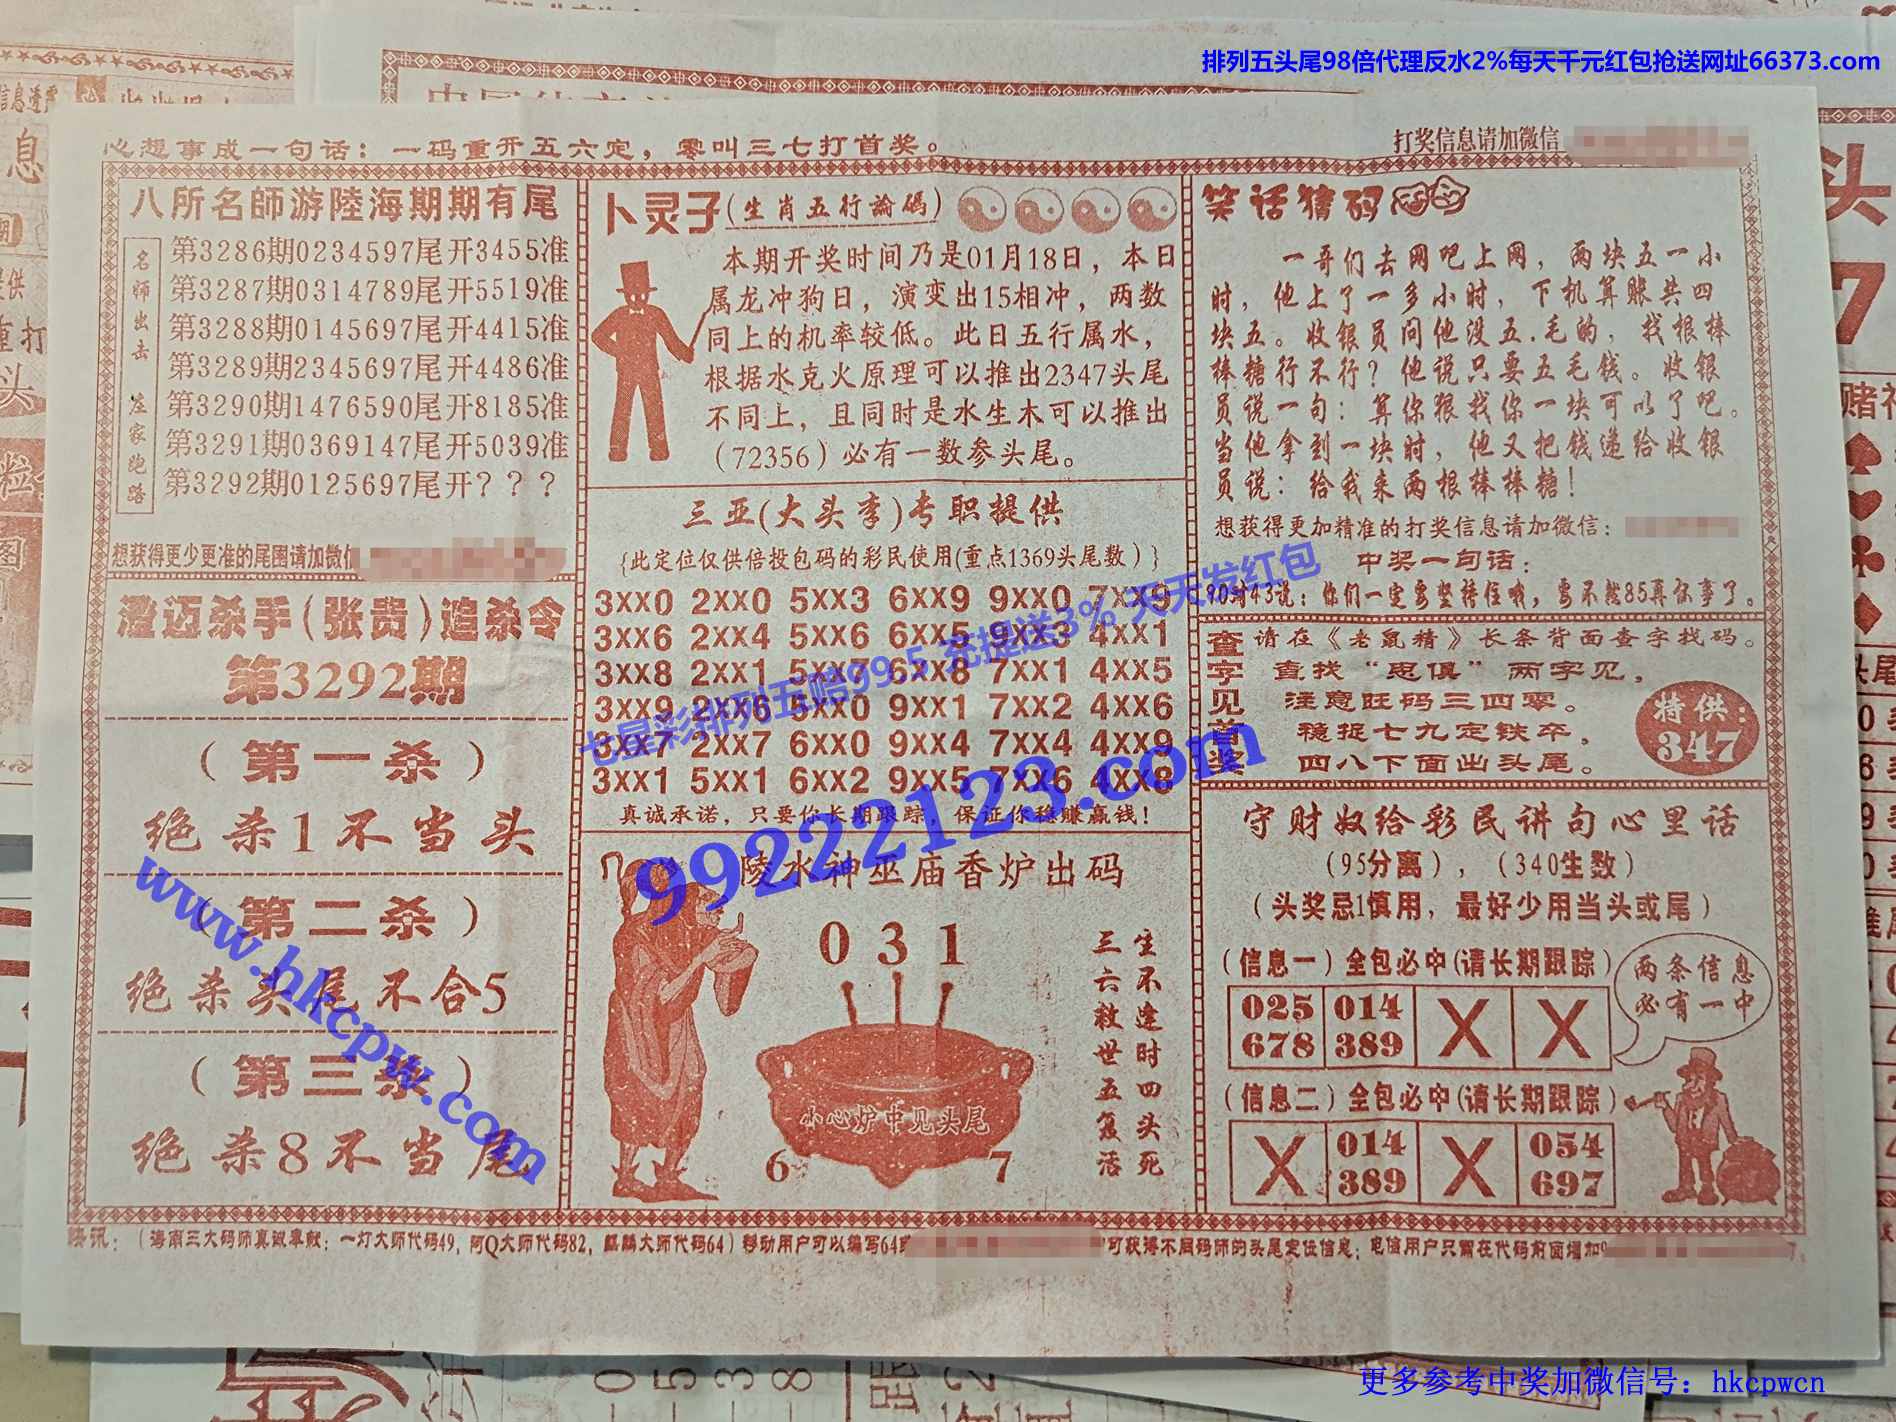 排列五头尾98倍代理反水2%每天千元红包抢送网址66373.com
心想事成一句话：一码重开五六定，零叫三七打首奖。
打奖信息请加微信
八所名師游陸海期期有尾
名师出击 庄家跑路
第3286期0234597尾开3455准
第3287期0314789尾开5519准
第3288期0145697尾开4415准
第3289期2345697尾开4486准
第3290期1476590尾开8185准
第3291期0369147尾开5039准
第3292期0125697尾开？？？
想获得更少更准的尾围请加微信
澄迈杀手(张贵)追杀令
第3292期
（第一杀）
绝杀1不当头
（第二杀）
绝杀头尾不合5
（第三杀）
绝杀8不当尾
卜灵子(生肖五行論碼)
本期开奖时间乃是01月18日，本日
属龙冲狗日，演变出15相冲，两数
同上的机率较低。此日五行属水，
根据水克火原理可以推出2347头尾
不同上，且同时是水生木可以推出
（72356）必有一数参头尾。
三亚(大头李)专职提供
{此定位仅供倍投包码的彩民使用(重点1369头尾数）}
3XX0 2XX0 5XX3 6XX9 9XX0 7XX9
3XX6 2XX4 5XX6 6XX5 9XX3 4XX1
3XX8 2XX1 5XX7 6XX8 7XX1 4XX5
3XX9 2XX6 5XX0 9XX1 7XX2 4XX6
3XX7 2XX7 6XX0 9XX4 7XX4 4XX9
3XX1 5XX1 6XX2 9XX5 7XX6 4XX8
真诚承诺，只要你长期跟踪，保证你稳赚赢钱！
陵水神巫庙香炉出码
031
小心炉中见头尾
6 7
生不逢时四头死
三六救世五复活
笑话猜码
一哥们去网吧上网，两块五一小
时，他上了一多小时，下机算账共四
块五。收银员问他没五.毛的，找根棒
棒糖行不行？他说只要五毛钱。收银
员说一句：算你狠找你一块可以了吧。
当他拿到一块时，他又把钱递给收银
员说：给我来两根棒棒糖！
想获得更加精准的打奖信息请加微信：
中奖一句话：
90对43说：你们一定要坚持住哦，要不然85再你事了。
查字见首奖
请在《老鼠精》长条背面查字找码。
查找“思俱”两字见，
注意旺码三四零。
稳捉七九定铁卒，
四八下面出头尾。
特供：
347
守财奴给彩民讲句心里话
（95分离），（340生数）
（头奖忌1慎用，最好少用当头或尾）
（信息一）全包必中(请长期跟踪)
025 014 X X
678 389
两条信息
必有一中
（信息二）全包必中(请长期跟踪)
X 014 X 054
389 697
快讯：（海南三大码师真诚奉献：一灯大师代码49，阿Q大师代码82，麒麟大师代码64）移动用户可以编写64或
可获得不同码师的头尾定位信息；电信用户只需在代码前面增加9
七星彩排列五赔99.5 充提送3% 天天发红包
99222123.com
www.hkcpw.com
更多参考中奖加微信号：hkcpwcn